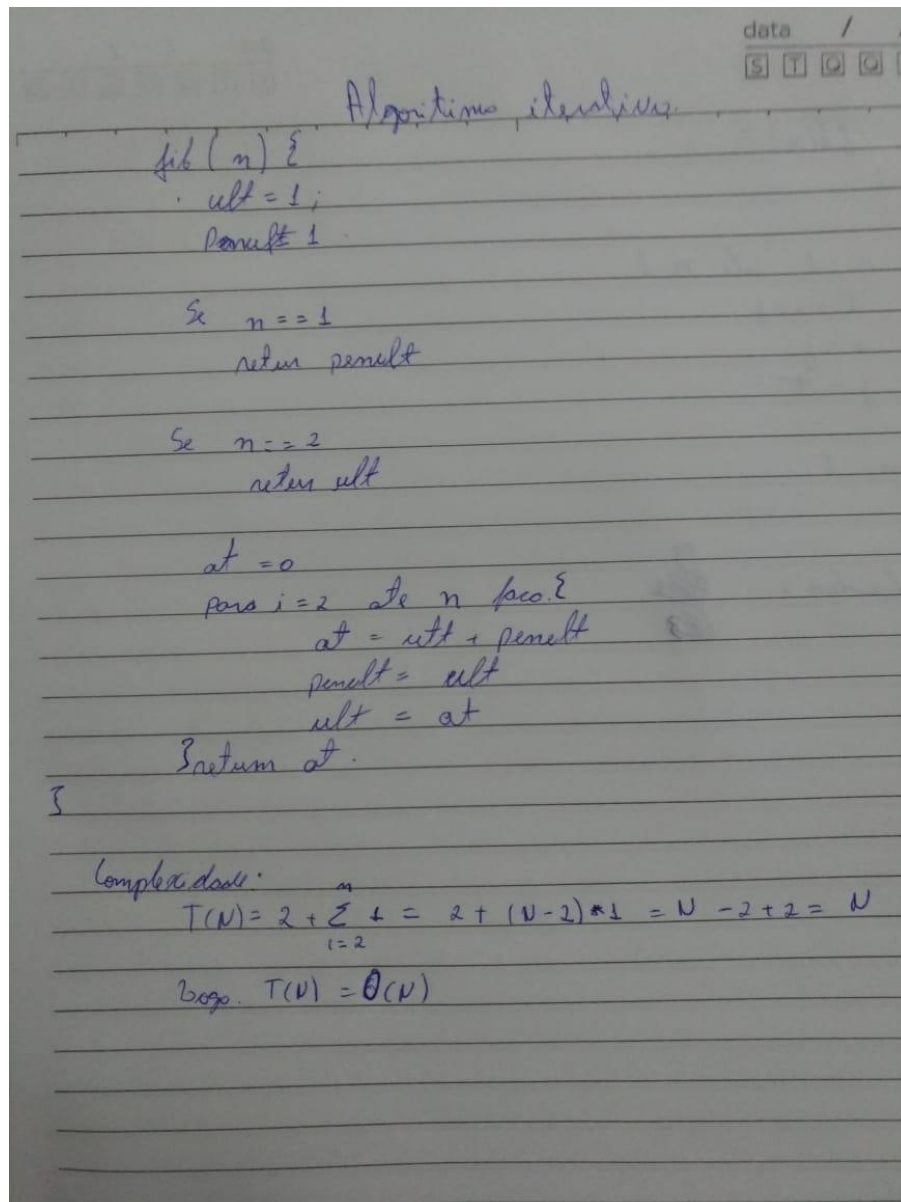 data / /
S T Q Q
Algoritimo iterativo.
fib (n) {
ult = 1;
Penult = 1
Se n == 1
retur penult
Se n == 2
retur ult
at = 0
para i = 2 ate n faca {
at = ult + penult
penult = ult
ult = at
} return at.
}
Complexidade:
T(N) = 2 + n Σ i=2 1 = 2 + (N-2)*1 = N - 2 + 2 = N
Logo. T(N) = O(N)